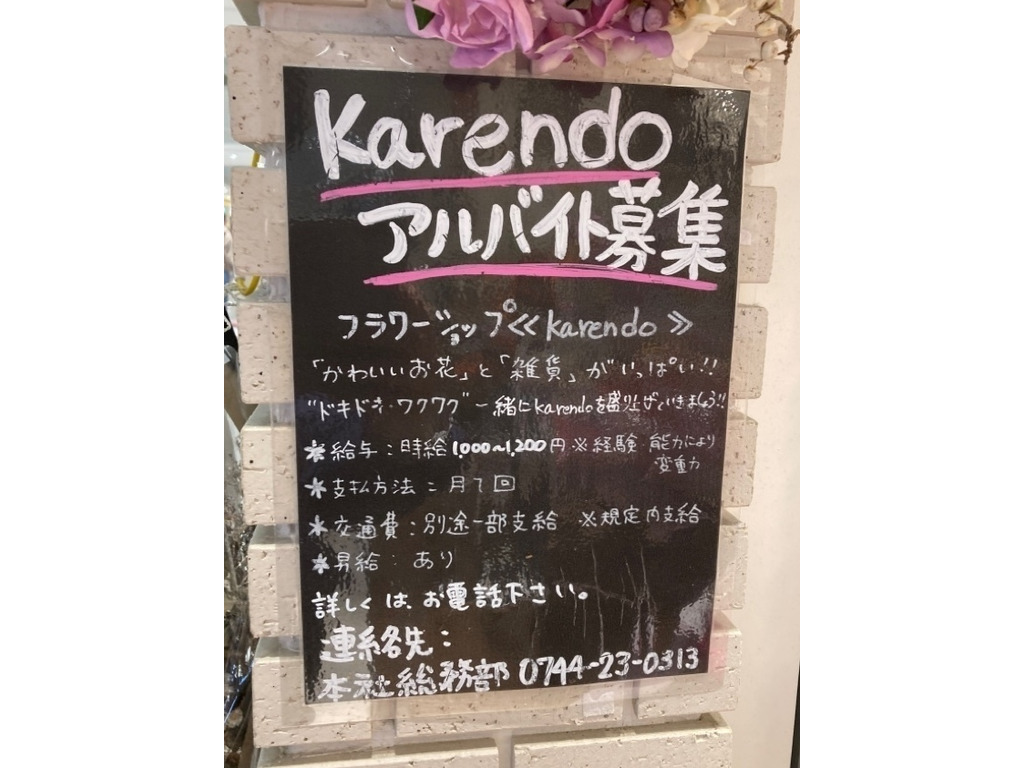 Karendo
アルバイト募集
フラワーショップ≪karendo≫
「かわいいお花」と「雑貨」がいっぱい!!
"ドキドキ・ワクワク"一緒にkarendoを盛り上げていきましょう!!
*給与:時給1,000~1,200円 ※経験・能力により
変動
*支払方法:月1回
*交通費:別途一部支給 ※規定内支給
*昇給:あり
詳しくは、お電話下さい。
連絡先:
本社総務部 0744-23-0313